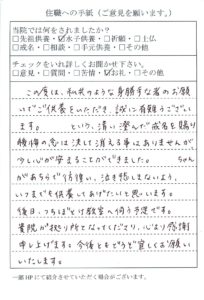 住職への手紙（ご意見を願います。）
当院では何をされましたか？
□先祖供養・☑水子供養・□祈願・□上仏
□戒名・□相談・□手元供養・□その他
チェックをいれ詳しくお聞かせ下さい。
□意見・□質問・□苦情・☑お礼・□その他
この度は、私共のような身勝手な者のお願
いでご供養をいただき、誠に有難うござい
ます。　という、清い澄んだ戒名を賜り
後悔の念は決して消える事はありませんが
少し心が安まることができました。　ちゃん
があちらで彷徨い、泣き悲しまないよう、
いつまでも供養してあげたいと思います。
後日、うちほとけ教室へ伺う予定です。
貴院が拠り所となってくださり、心より感謝
申し上げます。今後ともどうぞ宜しくお願い
いたします。
一部HPにて紹介させていただく場合がございます。